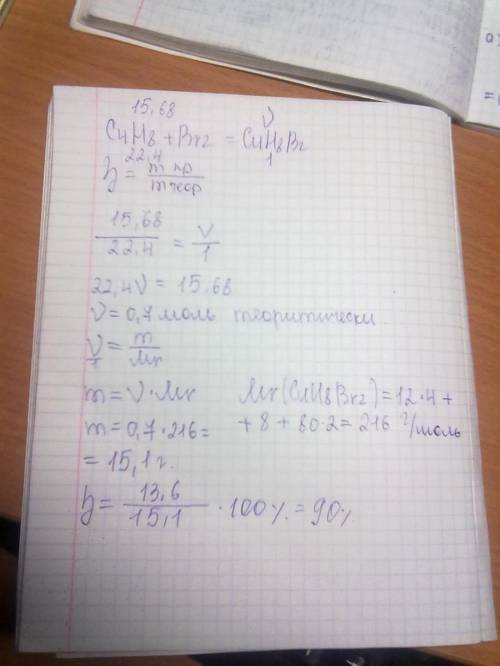 15,68 ν
C4H8 + Br2 = C4H8Br
22,4 1
η = m пр / m теор
15,68 / 22,4 = ν / 1
22,4ν = 15,68
ν = 0,7 моль теоритически.
ν = m / Mr
m = ν · Mr Mr(C4H8Br2) = 12·4 +
m = 0,7 · 216 = + 8 + 80·2 = 216 г/моль
= 15,1 г.
η = 13,6 / 15,1 · 100% = 90%